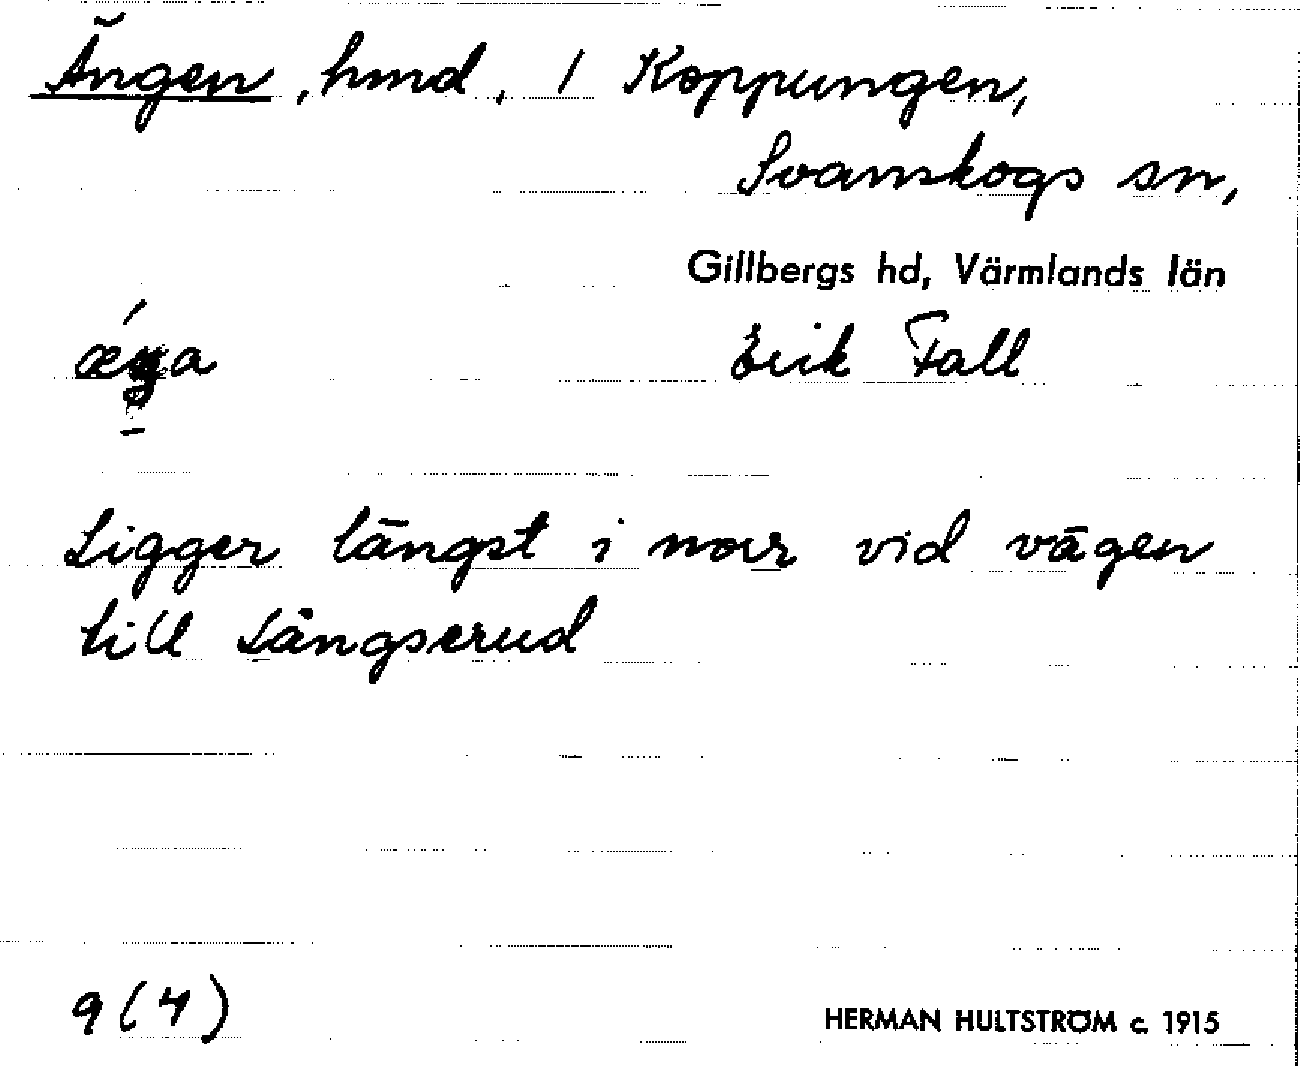 Ängen, hmd, 1 Koppungen,
Svanskogs sn,
Gillbergs hd, Värmlands län
Erik Fall
Ligger längst i norr vid vägen
till Långserud
9 (4)
HERMAN HULTSTRÖM c. 1915